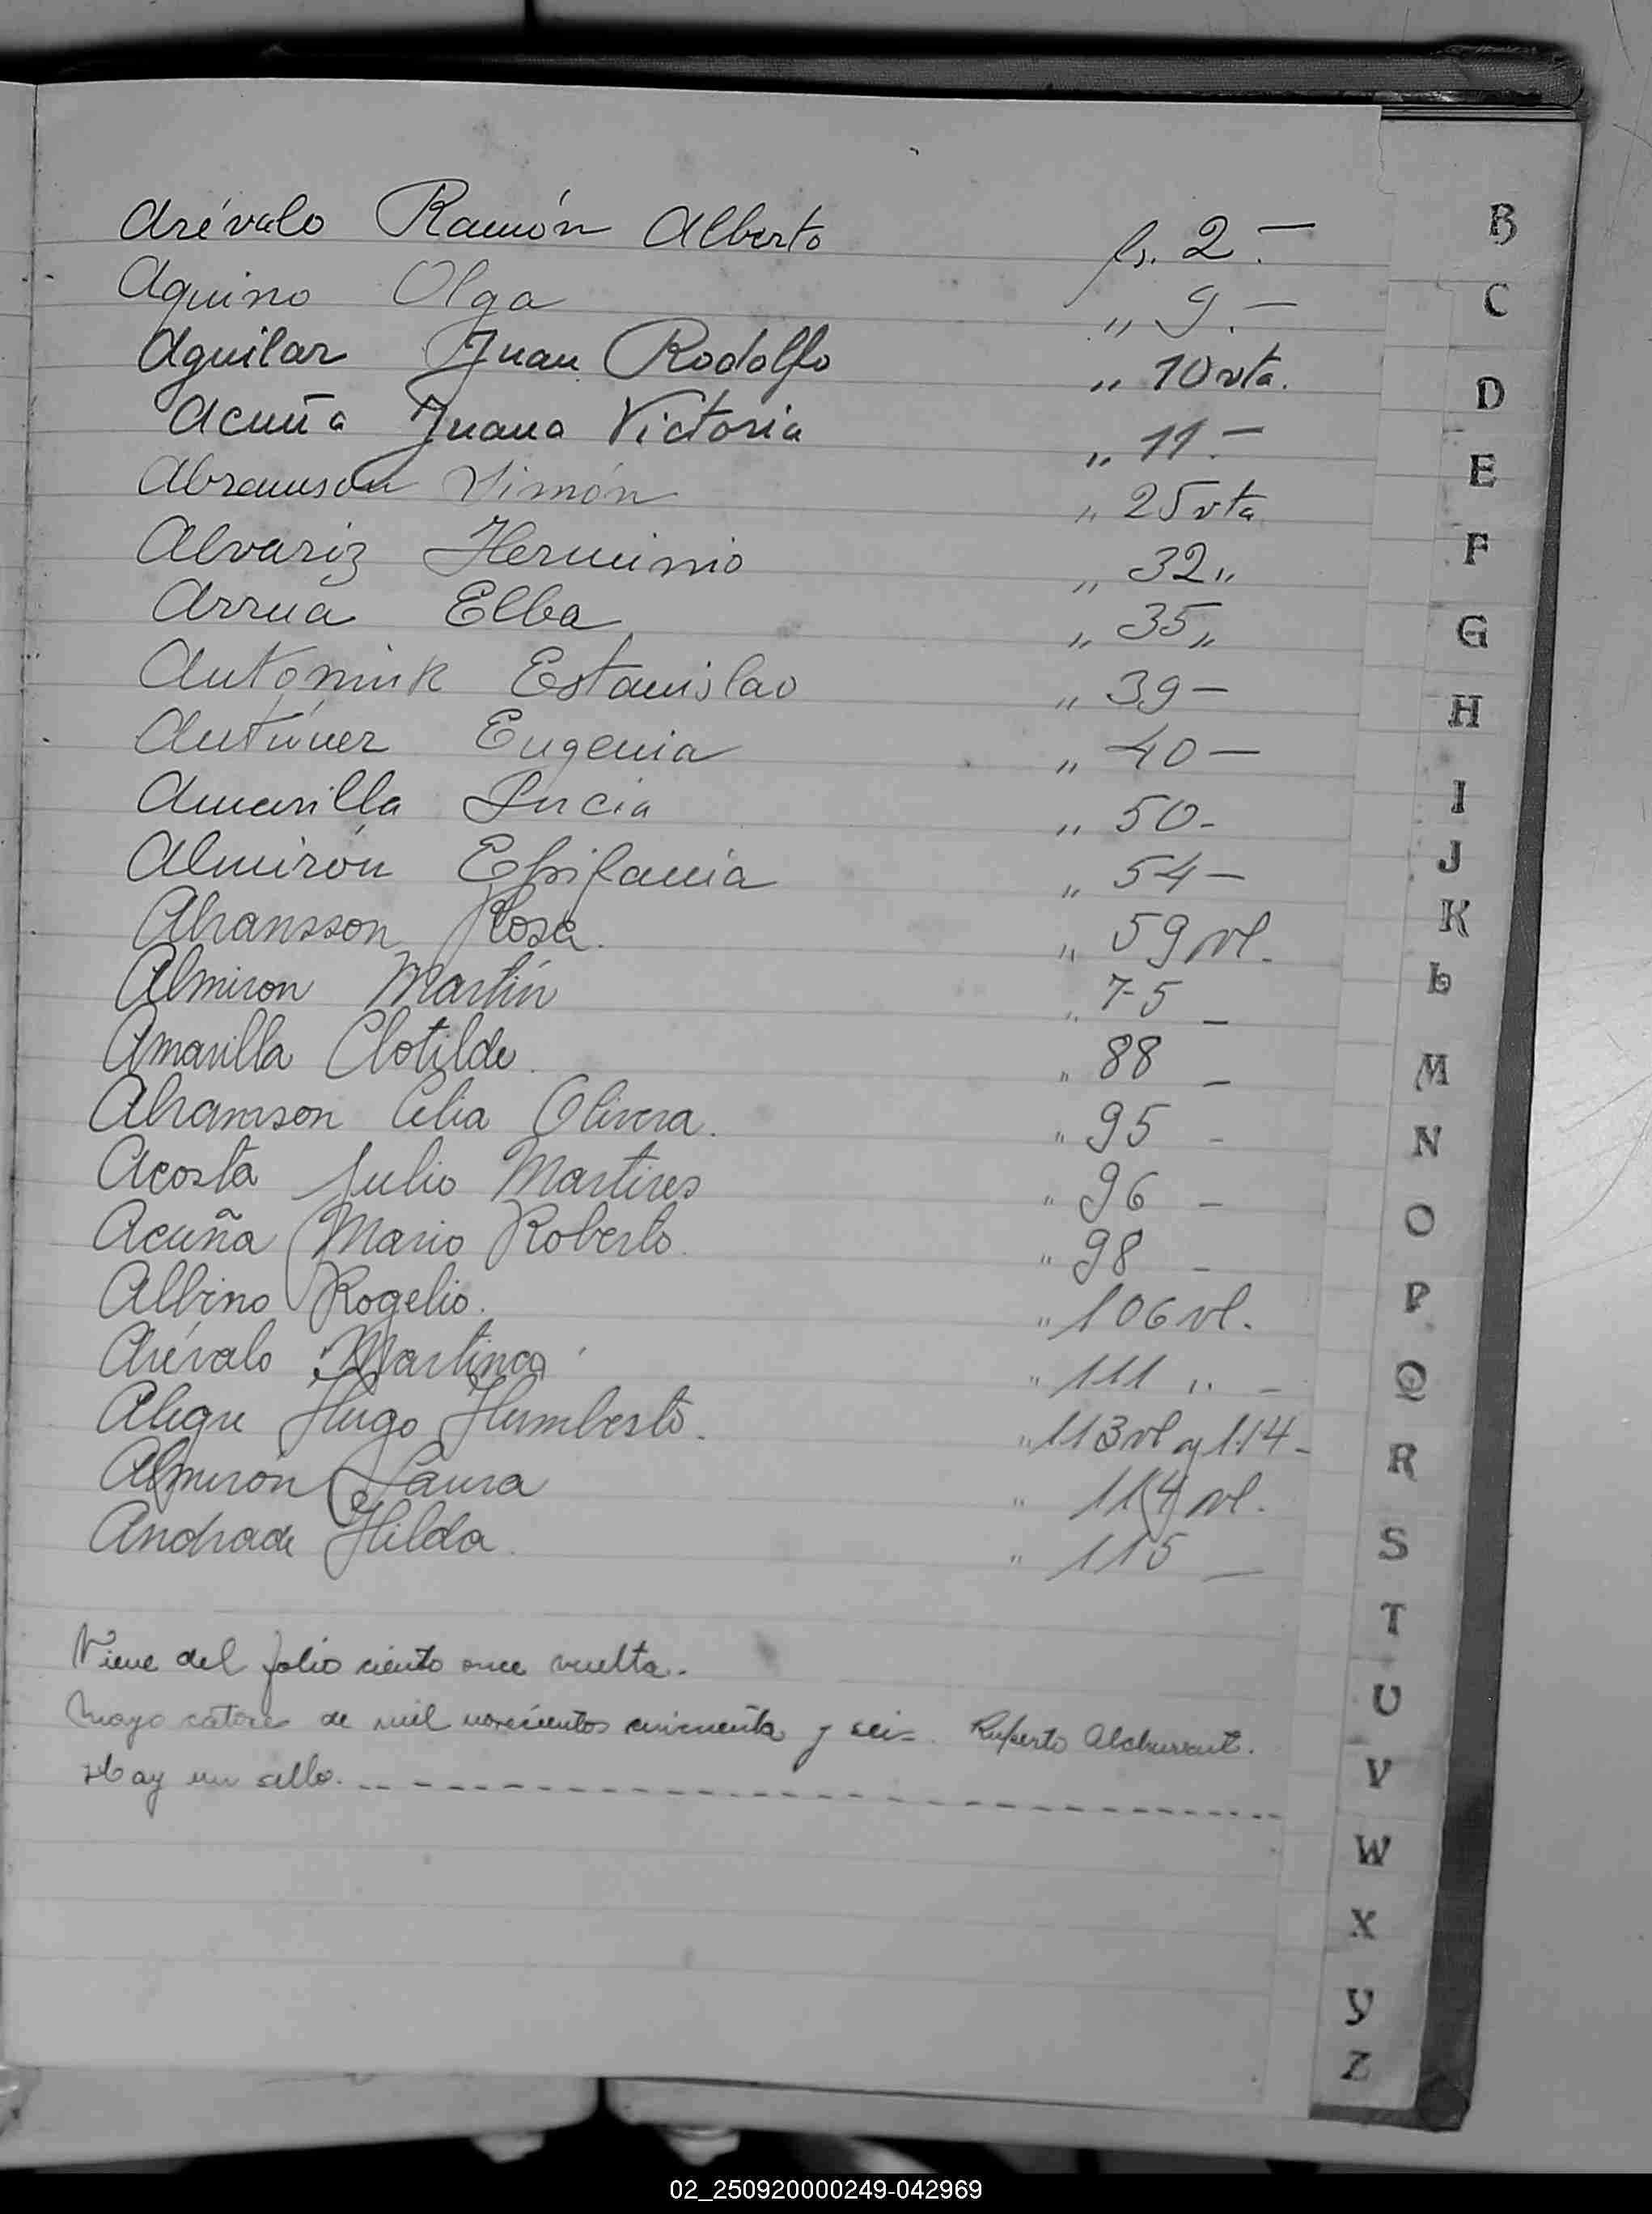 Arévalo Ramón Alberto fs. 2.—
Aquino Olga „ 9.—
Aguilar Juan Rodolfo „ 10 vta.
Acuña Juana Victoria „ 11.—
Abramson Simón „ 25 vta
Alvariz Herminio „ 32 „
Arrua Elba „ 35 „
Antonink Estanislao „ 39 —
Antúnez Eugenia „ 40 —
Amarilla Lucia „ 50 -
Almirón Epifania „ 54 —
Ahansson Rosa. „ 59 vl.
Almiron Martín „ 75 —
Amarilla Clotilde. „ 88 —
Abramson Celia Olivera. „ 95 -
Acosta Julio Martires „ 96 —
Acuña Mario Roberto. „ 98 —
Albino Rogelio. „ 106 vl.
Arévalo Martina „ 111 „ —
Alegre Hugo Humberto. „ 113 vl y 114 -
Almirón Laura „ 114 vl.
Andrade Hilda. „ 115 —
Viene del folio ciento once vuelta.
Mayo catorce de mil novecientos cincuenta y seis. Ruperto
Hay un sello.
B
C
D
E
F
G
H
I
J
K
L
M
N
O
P
Q
R
S
T
U
V
W
X
Y
Z
02_250920000249-042969